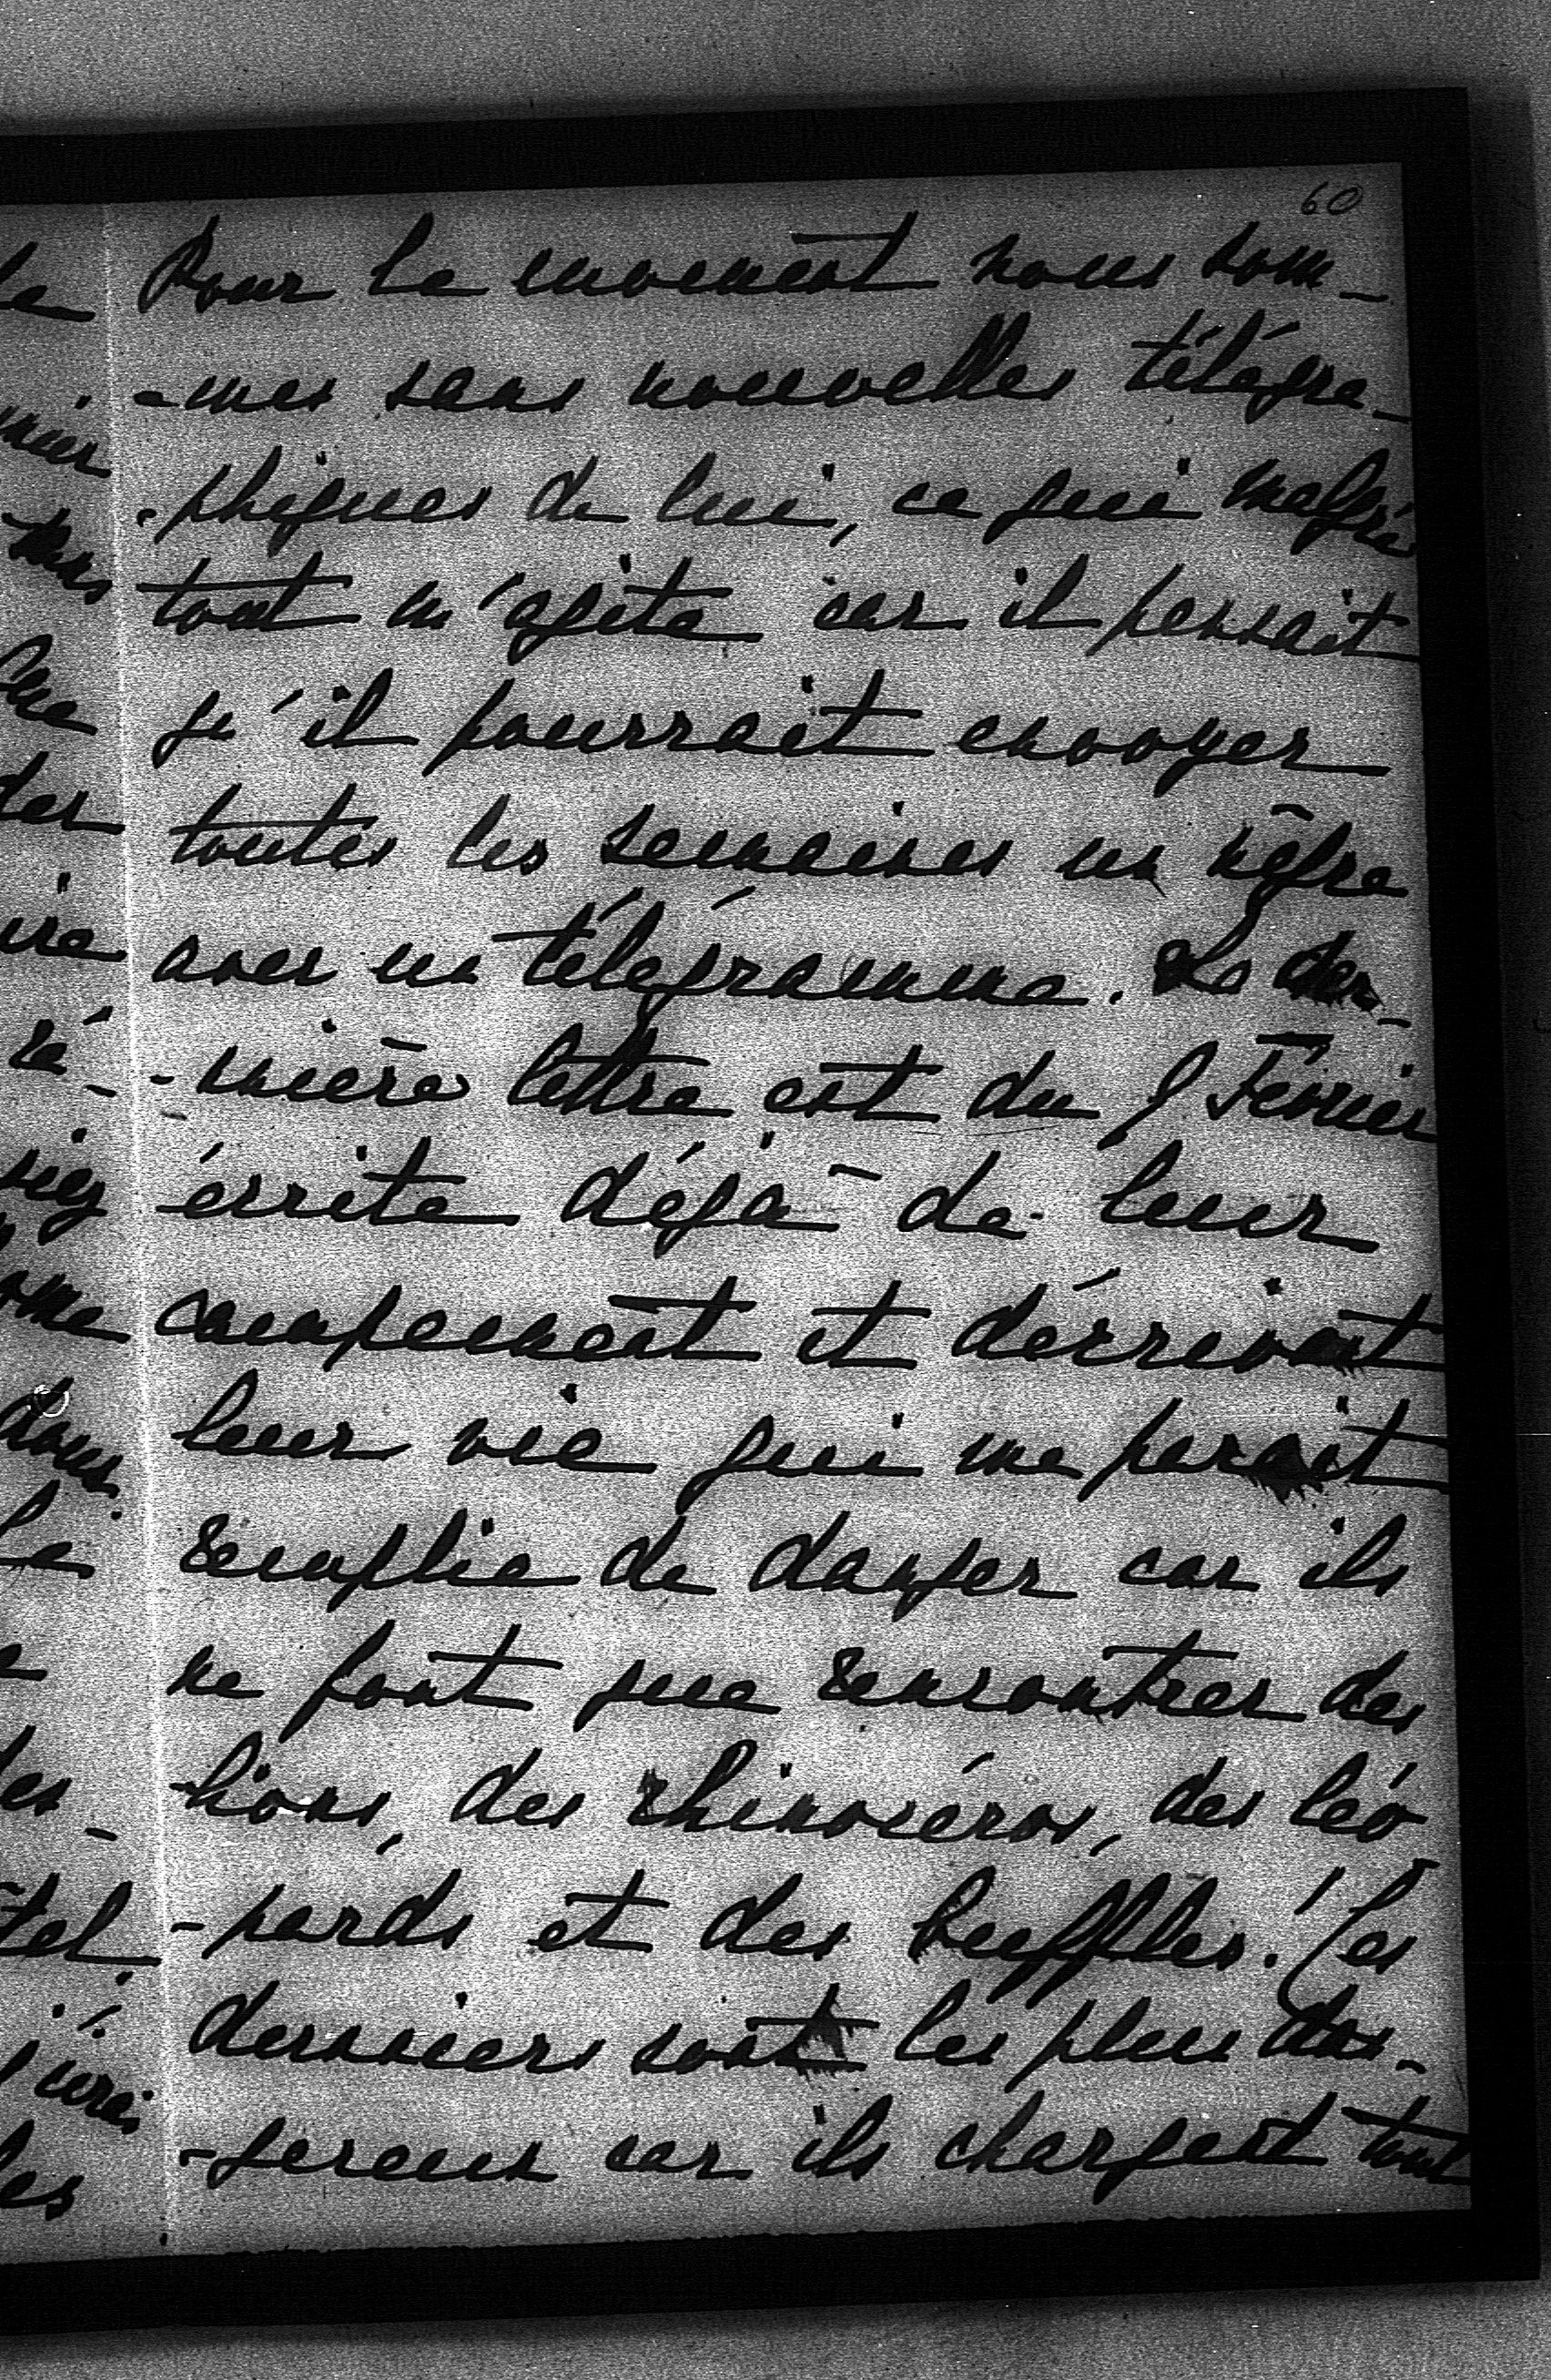 60
Pour le moment nous som-
-mes sans nouvelles télégra-
-phiques de lui, ce qui malgré
tout m'agite car il pensait
qu'il pourrait envoyer
toutes les semaines un nègre
avec un télégramme. La der-
-nière lettre est du Février
écrite déjà de leur
campement et décrivant
leur vie qui me parait
remplie de danger car ils
ne font que rencontrer des
lions, des rhinocéros, des léo
-pards et des buffles! Ces
derniers sont les plus dan-
-gereux car ils chargent tout